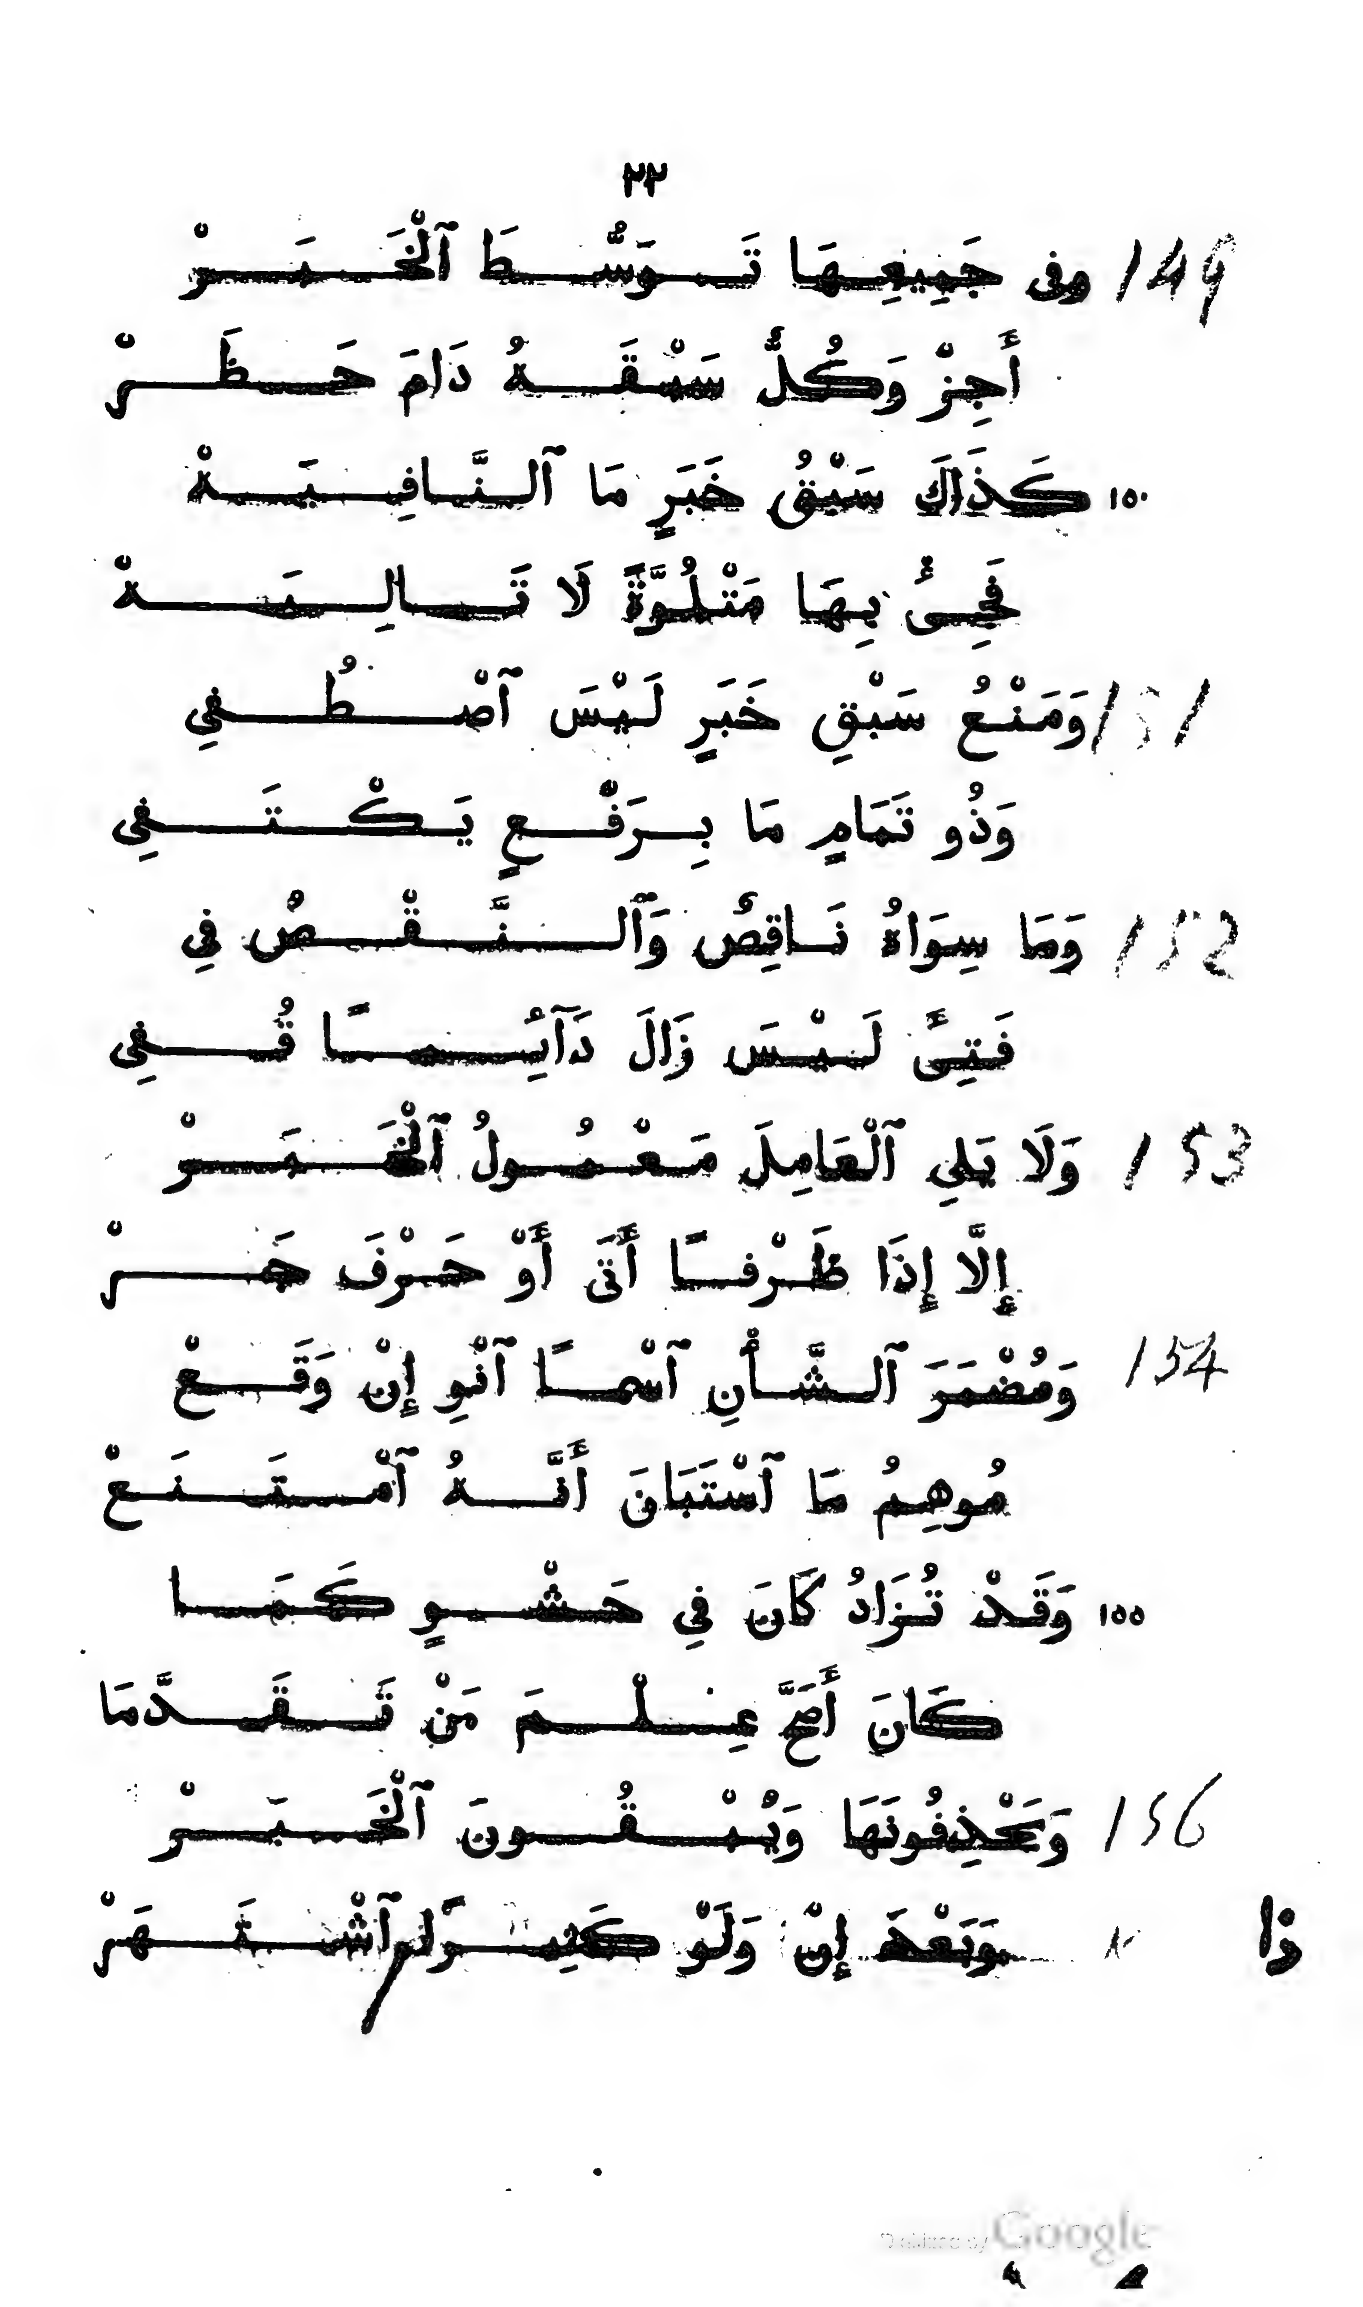 ٢٢
149 وفى جَمِيعِهَا تَوَسُّطَ ٱلْخَبَرْ
أَجِزْ وَكُلٌّ سَبْقَهُ دَامَ حَظَرْ
١٥٠ كَذَاكَ سَبْقُ خَبَرٍ مَا ٱلنَّافِيَهْ
فَجِئْ بِهَا مَتْلُوَّةً لَا تَالِيَهْ
151 وَمَنْعُ سَبْقِ خَبَرٍ لَيْسَ ٱصْطُفِي
وَذُو تَمَامٍ مَا بِرَفْعٍ يَكْتَفِي
152 وَمَا سِوَاهُ نَاقِصٌ وَٱلنَّقْصُ فِي
فَتِىَٔ لَيْسَ زَالَ دَآئِمًا قُفِي
153 وَلَا يَلِي ٱلْعَامِلَ مَعْمُولُ ٱلْخَبَرْ
إِلَّا إِذَا ظَرْفًا أَتَى أَوْ حَرْفَ جَرْ
154 وَمُضْمَرَ ٱلشَّأْنِ ٱسْمًا ٱنْوِ إِنْ وَقَعْ
مُوهِمُ مَا ٱسْتَبَانَ أَنَّهُ ٱمْتَنَعْ
١٥٥ وَقَدْ تُزَادُ كَانَ فِي حَشْوٍ كَمَا
كَانَ أَصَحَّ عِلْمَ مَنْ تَقَدَّمَا
156 وَيَحْذِفُونَهَا وَيُبْقُونَ ٱلْخَبَرْ
وَبَعْدَ إِنْ وَلَوْ كَثِيرًا ٱشْتَهَرْ
ذا
Digitized by Google